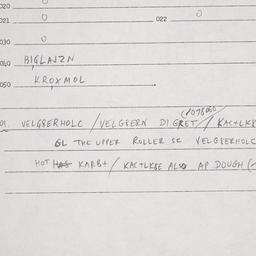 020 0
021 0 022 0
030 0
040 BIGLAJZN
050 KROXMOL
(1098060
01. VELGBERHOLC / VELGBERN DI GRET / KAC+LKB
GL THE UPPER ROLLER SC VELGBERHOLC
HOT KARB+ / KAC+LKBE ALSO AP DOUGH